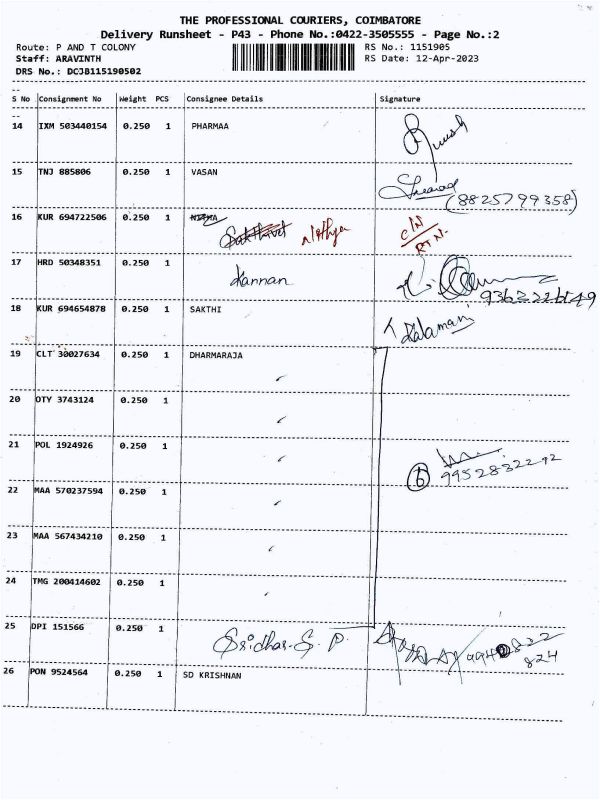 THE PROFESSIONAL COURIERS, COIMBATORE
Delivery Runsheet - P43 - Phone No.:0422-3505555 - Page No.:2
Route: P AND T COLONY RS No.: 1151905
Staff: ARAVINTH RS Date: 12-Apr-2023
DRS No.: DCJB115190502
S No Consignment No Weight PCS Consignee Details Signature
14 IXM 503440154 0.250 1 PHARMAA
15 TNJ 885806 0.250 1 VASAN
(8825799358)
16 KUR 694722506 0.250 1 Nithya C/N
RTN.
17 HRD 50348351 0.250 1 Kannan
18 KUR 694654878 0.250 1 SAKTHI Kalamani
19 CLT 30027634 0.250 1 DHARMARAJA
20 OTY 3743124 0.250 1
21 POL 1924926 0.250 1
6 9952832292
22 MAA 570237594 0.250 1
23 MAA 567434210 0.250 1
24 TMG 200414602 0.250 1
25 DPI 151566 0.250 1 Sridhar.S. P.
824
26 PON 9524564 0.250 1 SD KRISHNAN